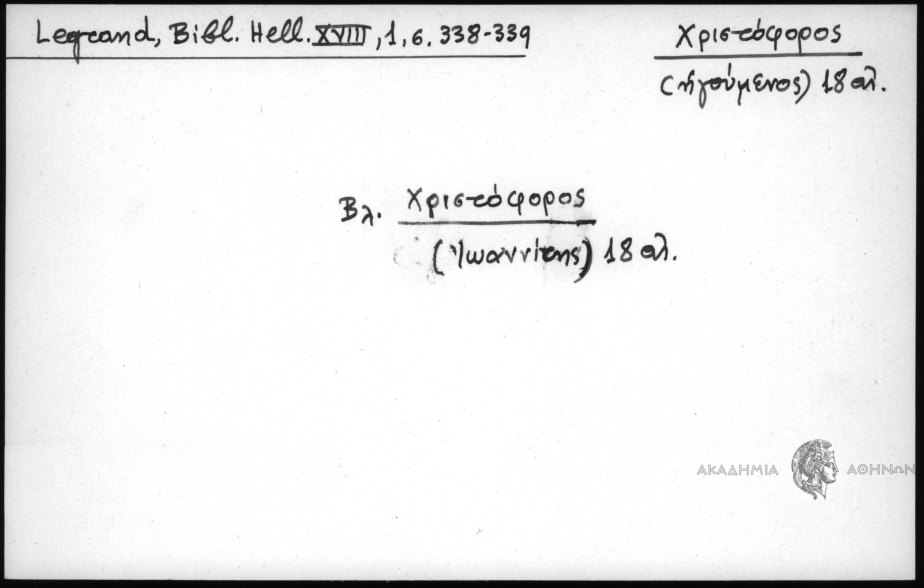 Legrand, Bibl. Hell. XVIII, 1, σ. 338-339
Χριστόφορος
(ἡγούμενος) 18 αἰ.
Βλ. Χριστόφορος
(Ἰωαννίτης) 18 αἰ.
ΑΚΑΔΗΜΙΑ ΑΘΗΝΩΝ